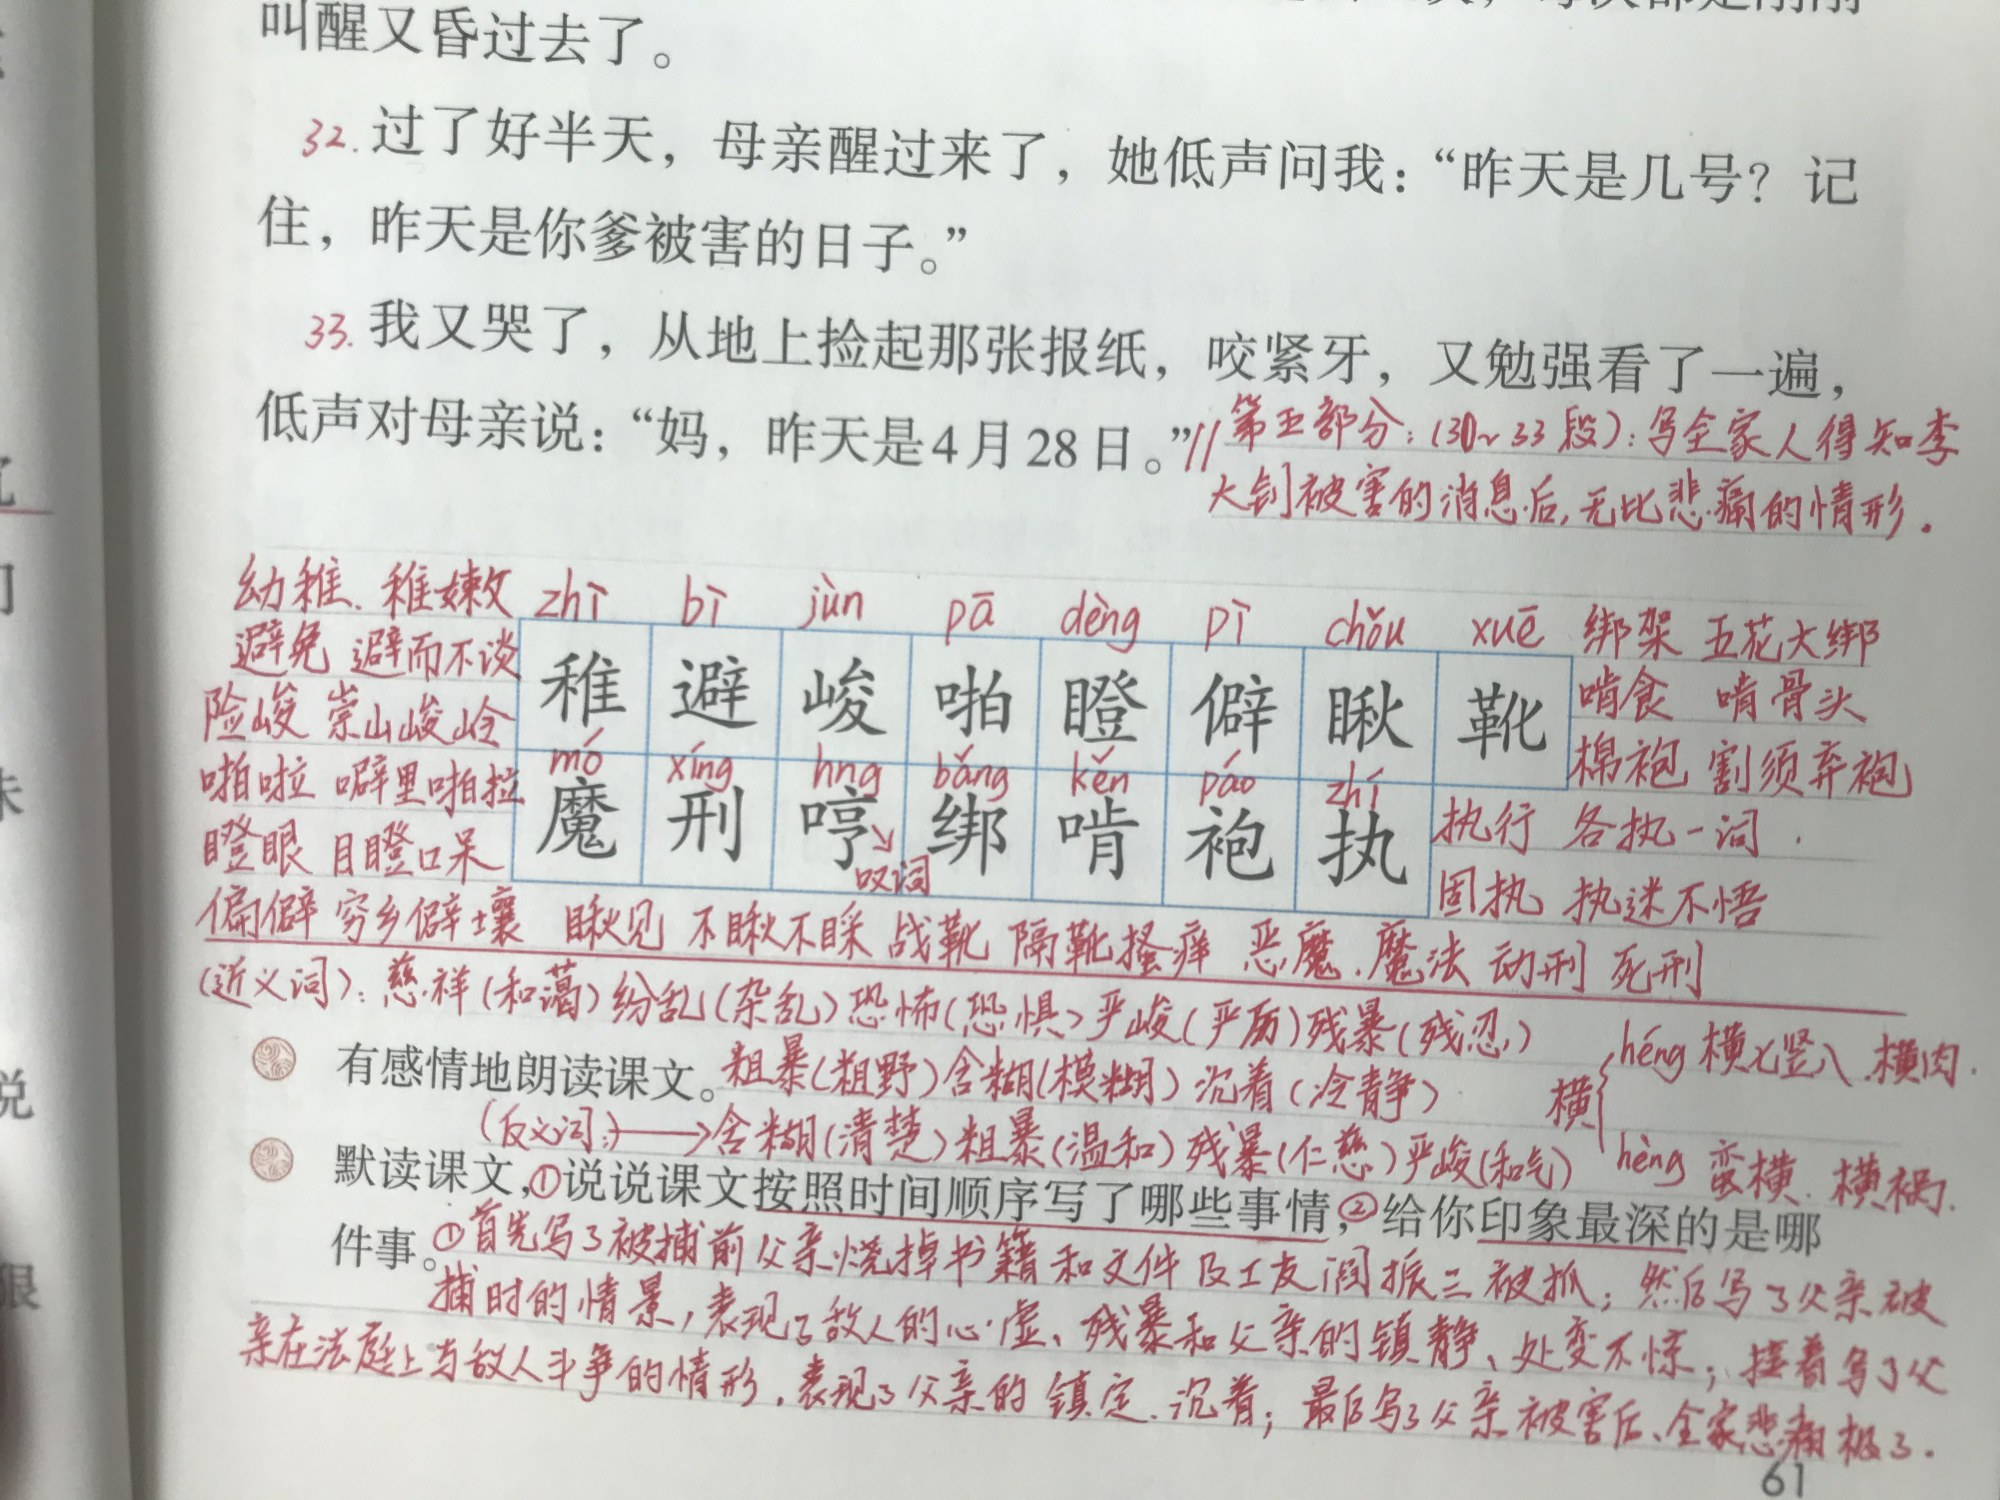 叫醒又昏过去了。
32.过了好半天，母亲醒过来了，她低声问我：“昨天是几号？记
住，昨天是你爹被害的日子。”
33.我又哭了，从地上捡起那张报纸，咬紧牙，又勉强看了一遍，
低声对母亲说：“妈，昨天是4月28日。”//第五部分：(30~33段)：写全家人得知李
大钊被害的消息后,无比悲痛的情形.
幼稚、稚嫩 zhì bì jùn pā dèng pì chǒu xuē 绑架 五花大绑
避免 避而不谈 稚 避 峻 啪 瞪 僻 瞅 靴 啃食 啃骨头
险峻 崇山峻岭 mó xíng hng bǎng kěn páo zhí 棉袍 割须弃袍
啪啦 噼里啪啦 魔 刑 哼 绑 啃 袍 执 执行 各执一词
瞪眼 目瞪口呆 叹词 固执 执迷不悟
偏僻 穷乡僻壤 瞅见 不瞅不睬 战靴 隔靴搔痒 恶魔、魔法 动刑 死刑
(近义词)：慈祥(和蔼)纷乱(杂乱)恐怖(恐惧)严峻(严厉)残暴(残忍)
有感情地朗读课文。粗暴(粗野)含糊(模糊)沉着(冷静) 横 héng 横七竖八、横肉.
(反义词：)→含糊(清楚)粗暴(温和)残暴(仁慈)严峻(和气) hèng 蛮横、横祸.
默读课文，①说说课文按照时间顺序写了哪些事情，②给你印象最深的是哪
件事。①首先写了被捕前父亲烧掉书籍和文件及工友阎振三被抓；然后写了父亲被
捕时的情景,表现了敌人的心虚、残暴和父亲的镇静、处变不惊；接着写了父
亲在法庭上与敌人斗争的情形,表现了父亲的镇定、沉着；最后写了父亲被害后、全家悲痛极了.
61